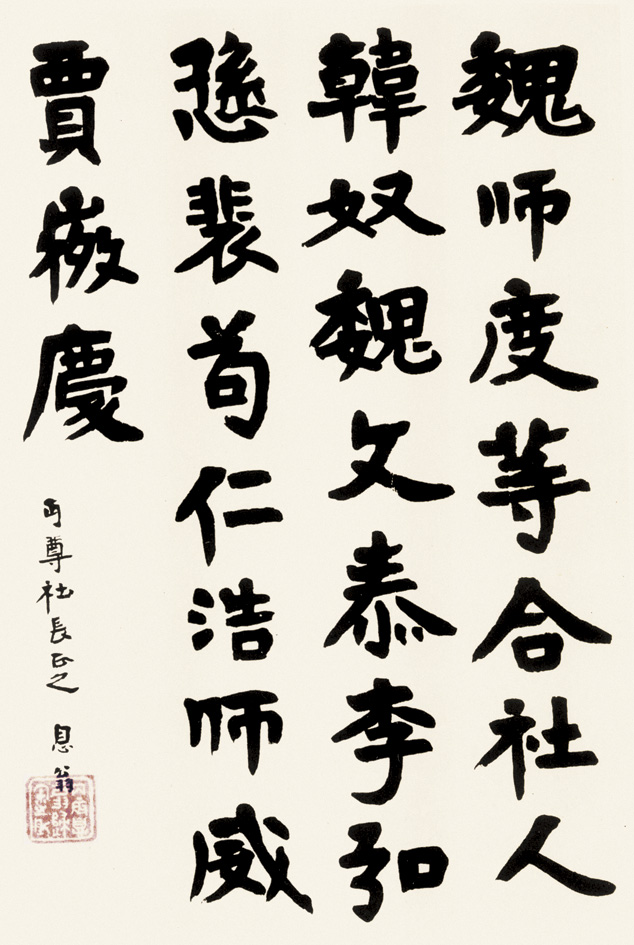 魏师度等合社人
韓奴魏文泰李弘
愻裴苟仁浩师威
賈慶
丏尊社長正之 息翁